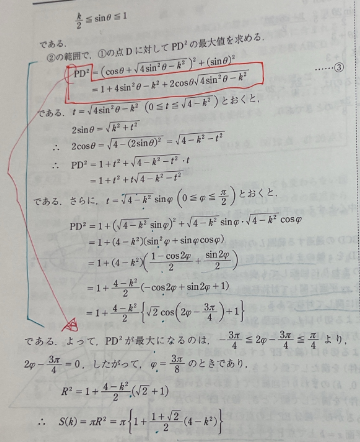 k/2 ≦ sinθ ≦ 1
である.
②の範囲で, ①の点Dに対してPD²の最大値を求める.
PD² = (cosθ + √(4sin²θ − k²))² + (sinθ)²
= 1 + 4sin²θ − k² + 2cosθ√(4sin²θ − k²) ……③
である. t = √(4sin²θ − k²) (0 ≦ t ≦ √(4 − k²)) とおくと,
2sinθ = √(k² + t²)
∴ 2cosθ = √(4 − (2sinθ)²) = √(4 − k² − t²)
∴ PD² = 1 + t² + √(4 − k² − t²)・t
= 1 + t² + t√(4 − k² − t²)
である. さらに, t = √(4 − k²) sinφ (0 ≦ φ ≦ π/2) とおくと,
PD² = 1 + (√(4 − k²) sinφ)² + √(4 − k²) sinφ・√(4 − k²) cosφ
= 1 + (4 − k²)(sin²φ + sinφcosφ)
= 1 + (4 − k²)((1 − cos2φ)/2 + sin2φ/2)
= 1 + (4 − k²)/2 (−cos2φ + sin2φ + 1)
= 1 + (4 − k²)/2 {√2 cos(2φ − 3π/4) + 1}
である. よって, PD²が最大になるのは, −3π/4 ≦ 2φ − 3π/4 ≦ π/4 より,
2φ − 3π/4 = 0, したがって, φ = 3π/8 のときであり,
R² = 1 + (4 − k²)/2 (√2 + 1)
∴ S(k) = πR² = π{1 + (1 + √2)/2 (4 − k²)}